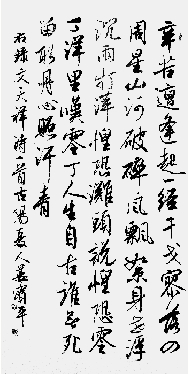 辛苦遭逢起一经干戈寥落四
周星山河破碎风飘絮身世浮
沉雨打萍惶恐滩头说惶恐零
丁洋里嘆零丁人生自古谁无死
留取丹心照汗青
右録文天祥诗一首古阳夏人